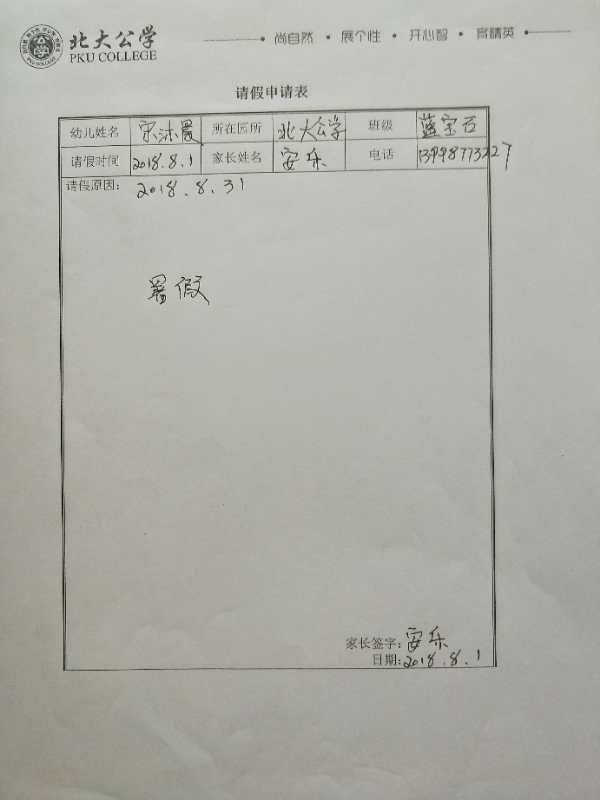 北大公学
PKU COLLEGE
尚自然 • 展个性 • 开心智 • 育精英
请假申请表
幼儿姓名 宋沐晨 所在园所 北大公学 班级 蓝宝石
请假时间 2018.8.1 家长姓名 安乐 电话 13998773227
请假原因: 2018.8.31
暑假
家长签字: 安乐
日期: 2018.8.1